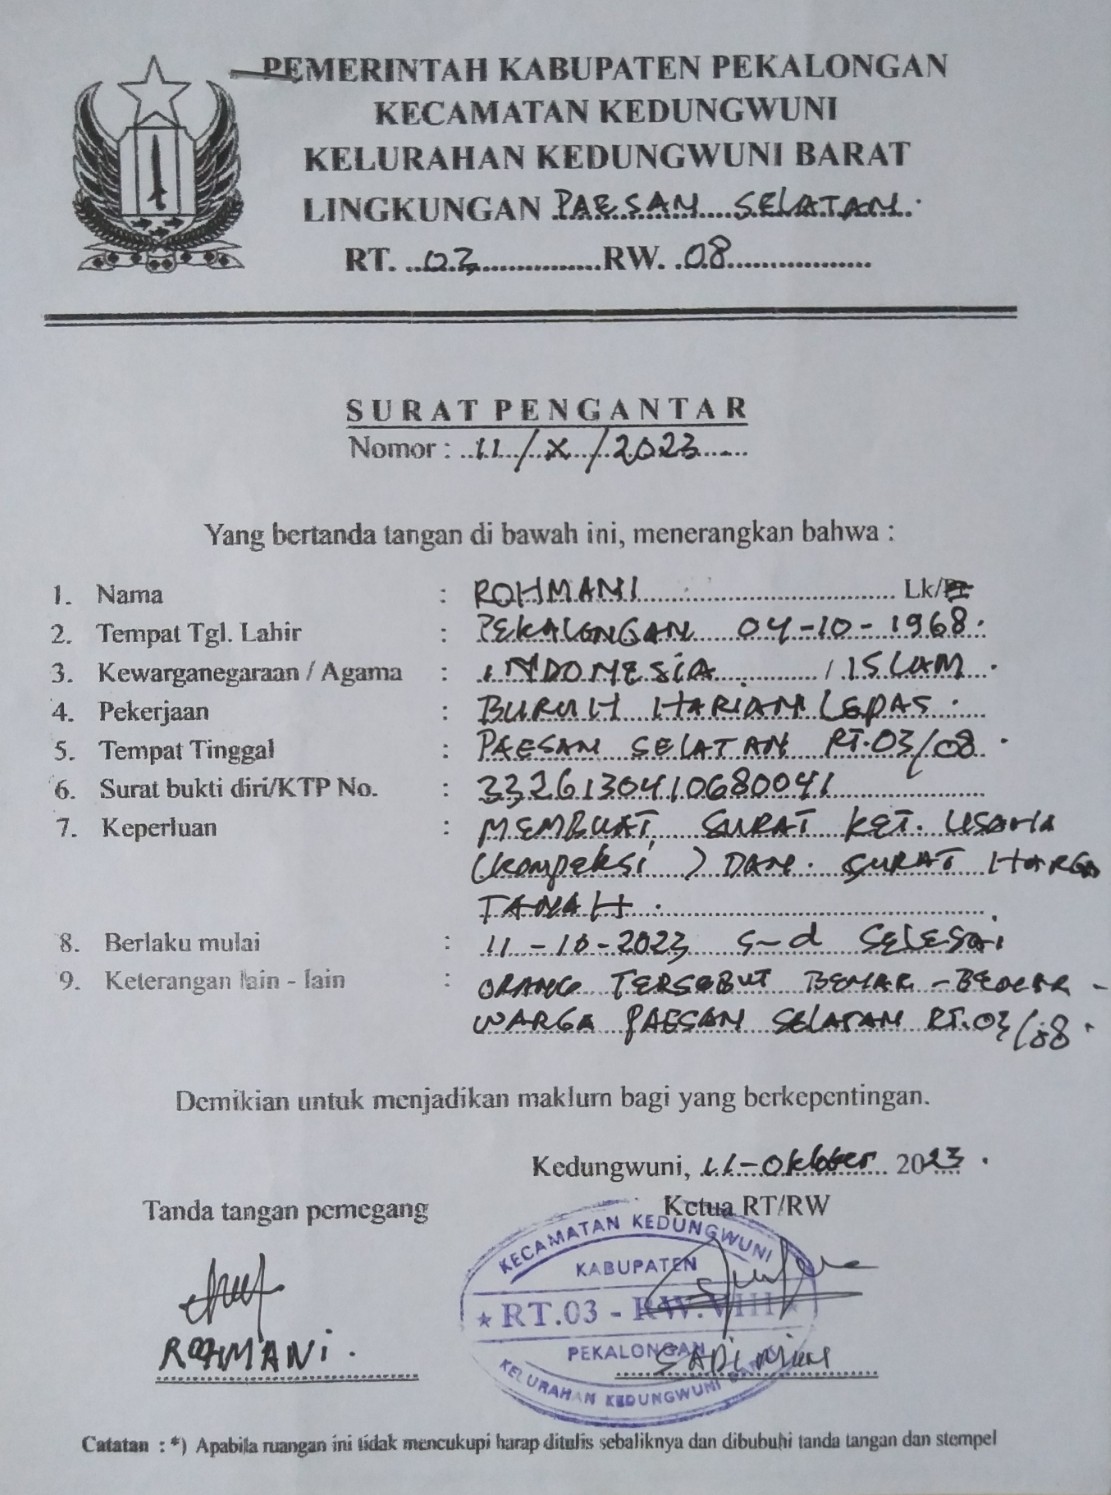 PEMERINTAH KABUPATEN PEKALONGAN
KECAMATAN KEDUNGWUNI
KELURAHAN KEDUNGWUNI BARAT
LINGKUNGAN PAESAN SELATAN.
RT. 03 RW. 08
SURAT PENGANTAR
Nomor : 11/X/2023
Yang bertanda tangan di bawah ini, menerangkan bahwa :
1. Nama : ROHMANI Lk/Pr
2. Tempat Tgl. Lahir : PEKALONGAN 04-10-1968.
3. Kewarganegaraan / Agama : INDONESIA / ISLAM.
4. Pekerjaan : BURUH HARIAN LEPAS.
5. Tempat Tinggal : PAESAN SELATAN RT.03/08.
6. Surat bukti diri/KTP No. : 3326130410680041
7. Keperluan : MEMBUAT SURAT KET. USAHA
(Kompeksi) DAN SURAT HARGA
TANAH.
8. Berlaku mulai : 11-10-2023 s-d SELESAI
9. Keterangan lain - lain : ORANG TERSEBUT BENAR-BENAR -
WARGA PAESAN SELATAN RT.03/08.
Demikian untuk menjadikan maklum bagi yang berkepentingan.
Kedungwuni, 11-Oktober 2023.
Tanda tangan pemegang Ketua RT/RW
KECAMATAN KEDUNGWUNI
KABUPATEN
★ RT.03 - RW.VIII ★
PEKALONGAN
KELURAHAN KEDUNGWUNI BARAT
ROHMANI.
Catatan : *) Apabila ruangan ini tidak mencukupi harap ditulis sebaliknya dan dibubuhi tanda tangan dan stempel